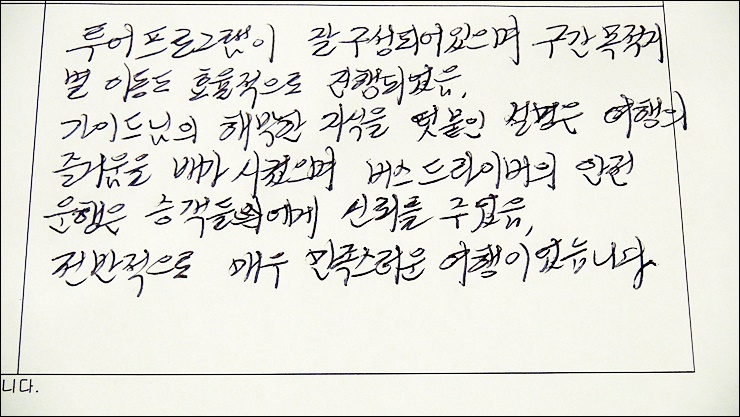 투어프로그램이 잘 구성되어있으며 구간 목적지
별 이동도 효율적으로 진행되었음,
가이드님의 해박한 지식을 덧붙인 설명은 여행의
즐거움을 배가 시켰으며 버스드라이버의 안전
운행은 승객들에게 신뢰를 주었음,
전반적으로 매우 만족스러운 여행이었습니다
니다.